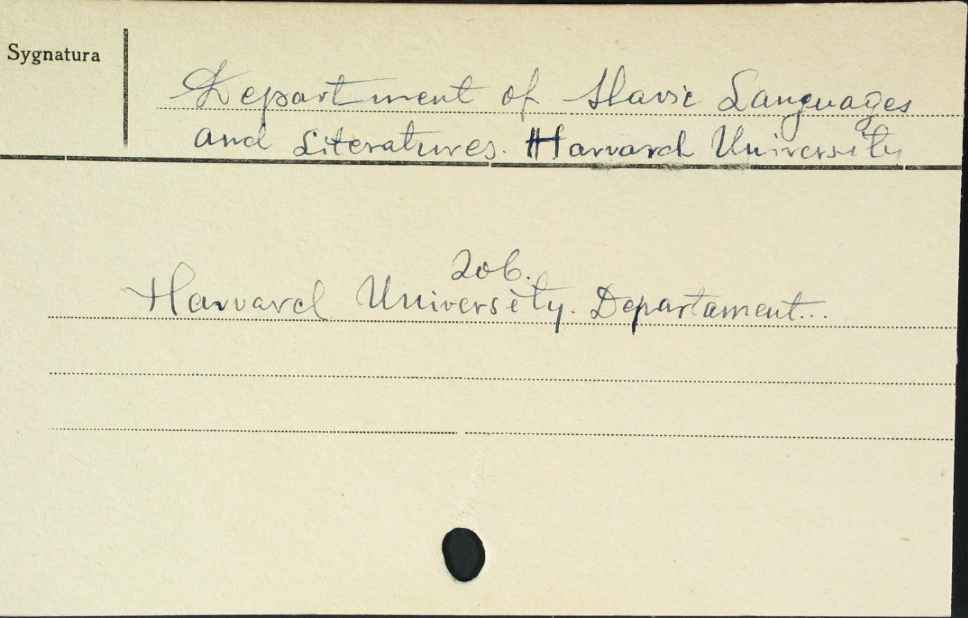 Sygnatura
Department of Slavic Languages
and Literatures. Harvard University
zob.
Harvard University. Departament...